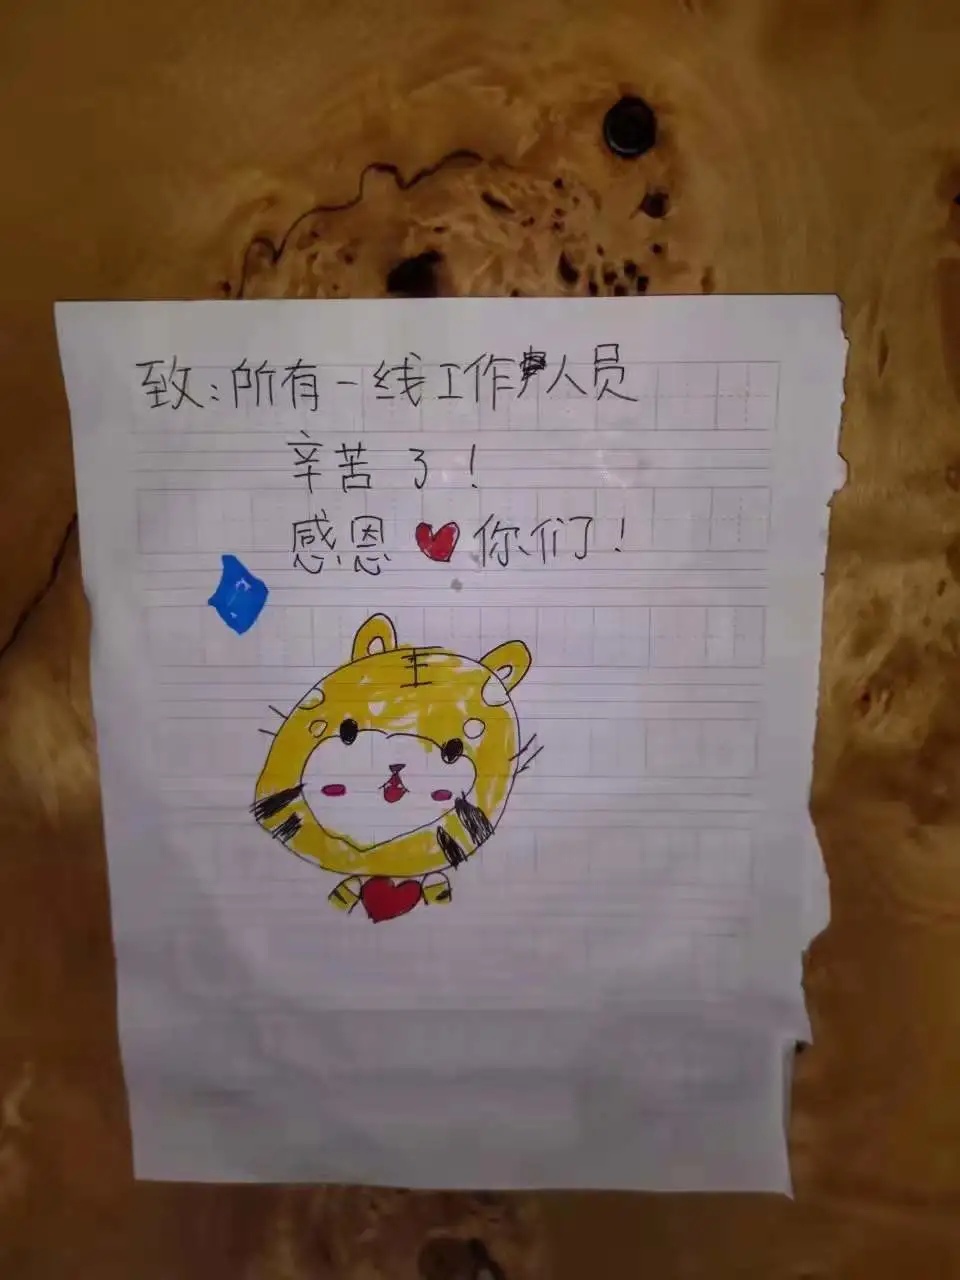 致:所有一线工作人员
辛苦了!
感恩❤你们了!
王